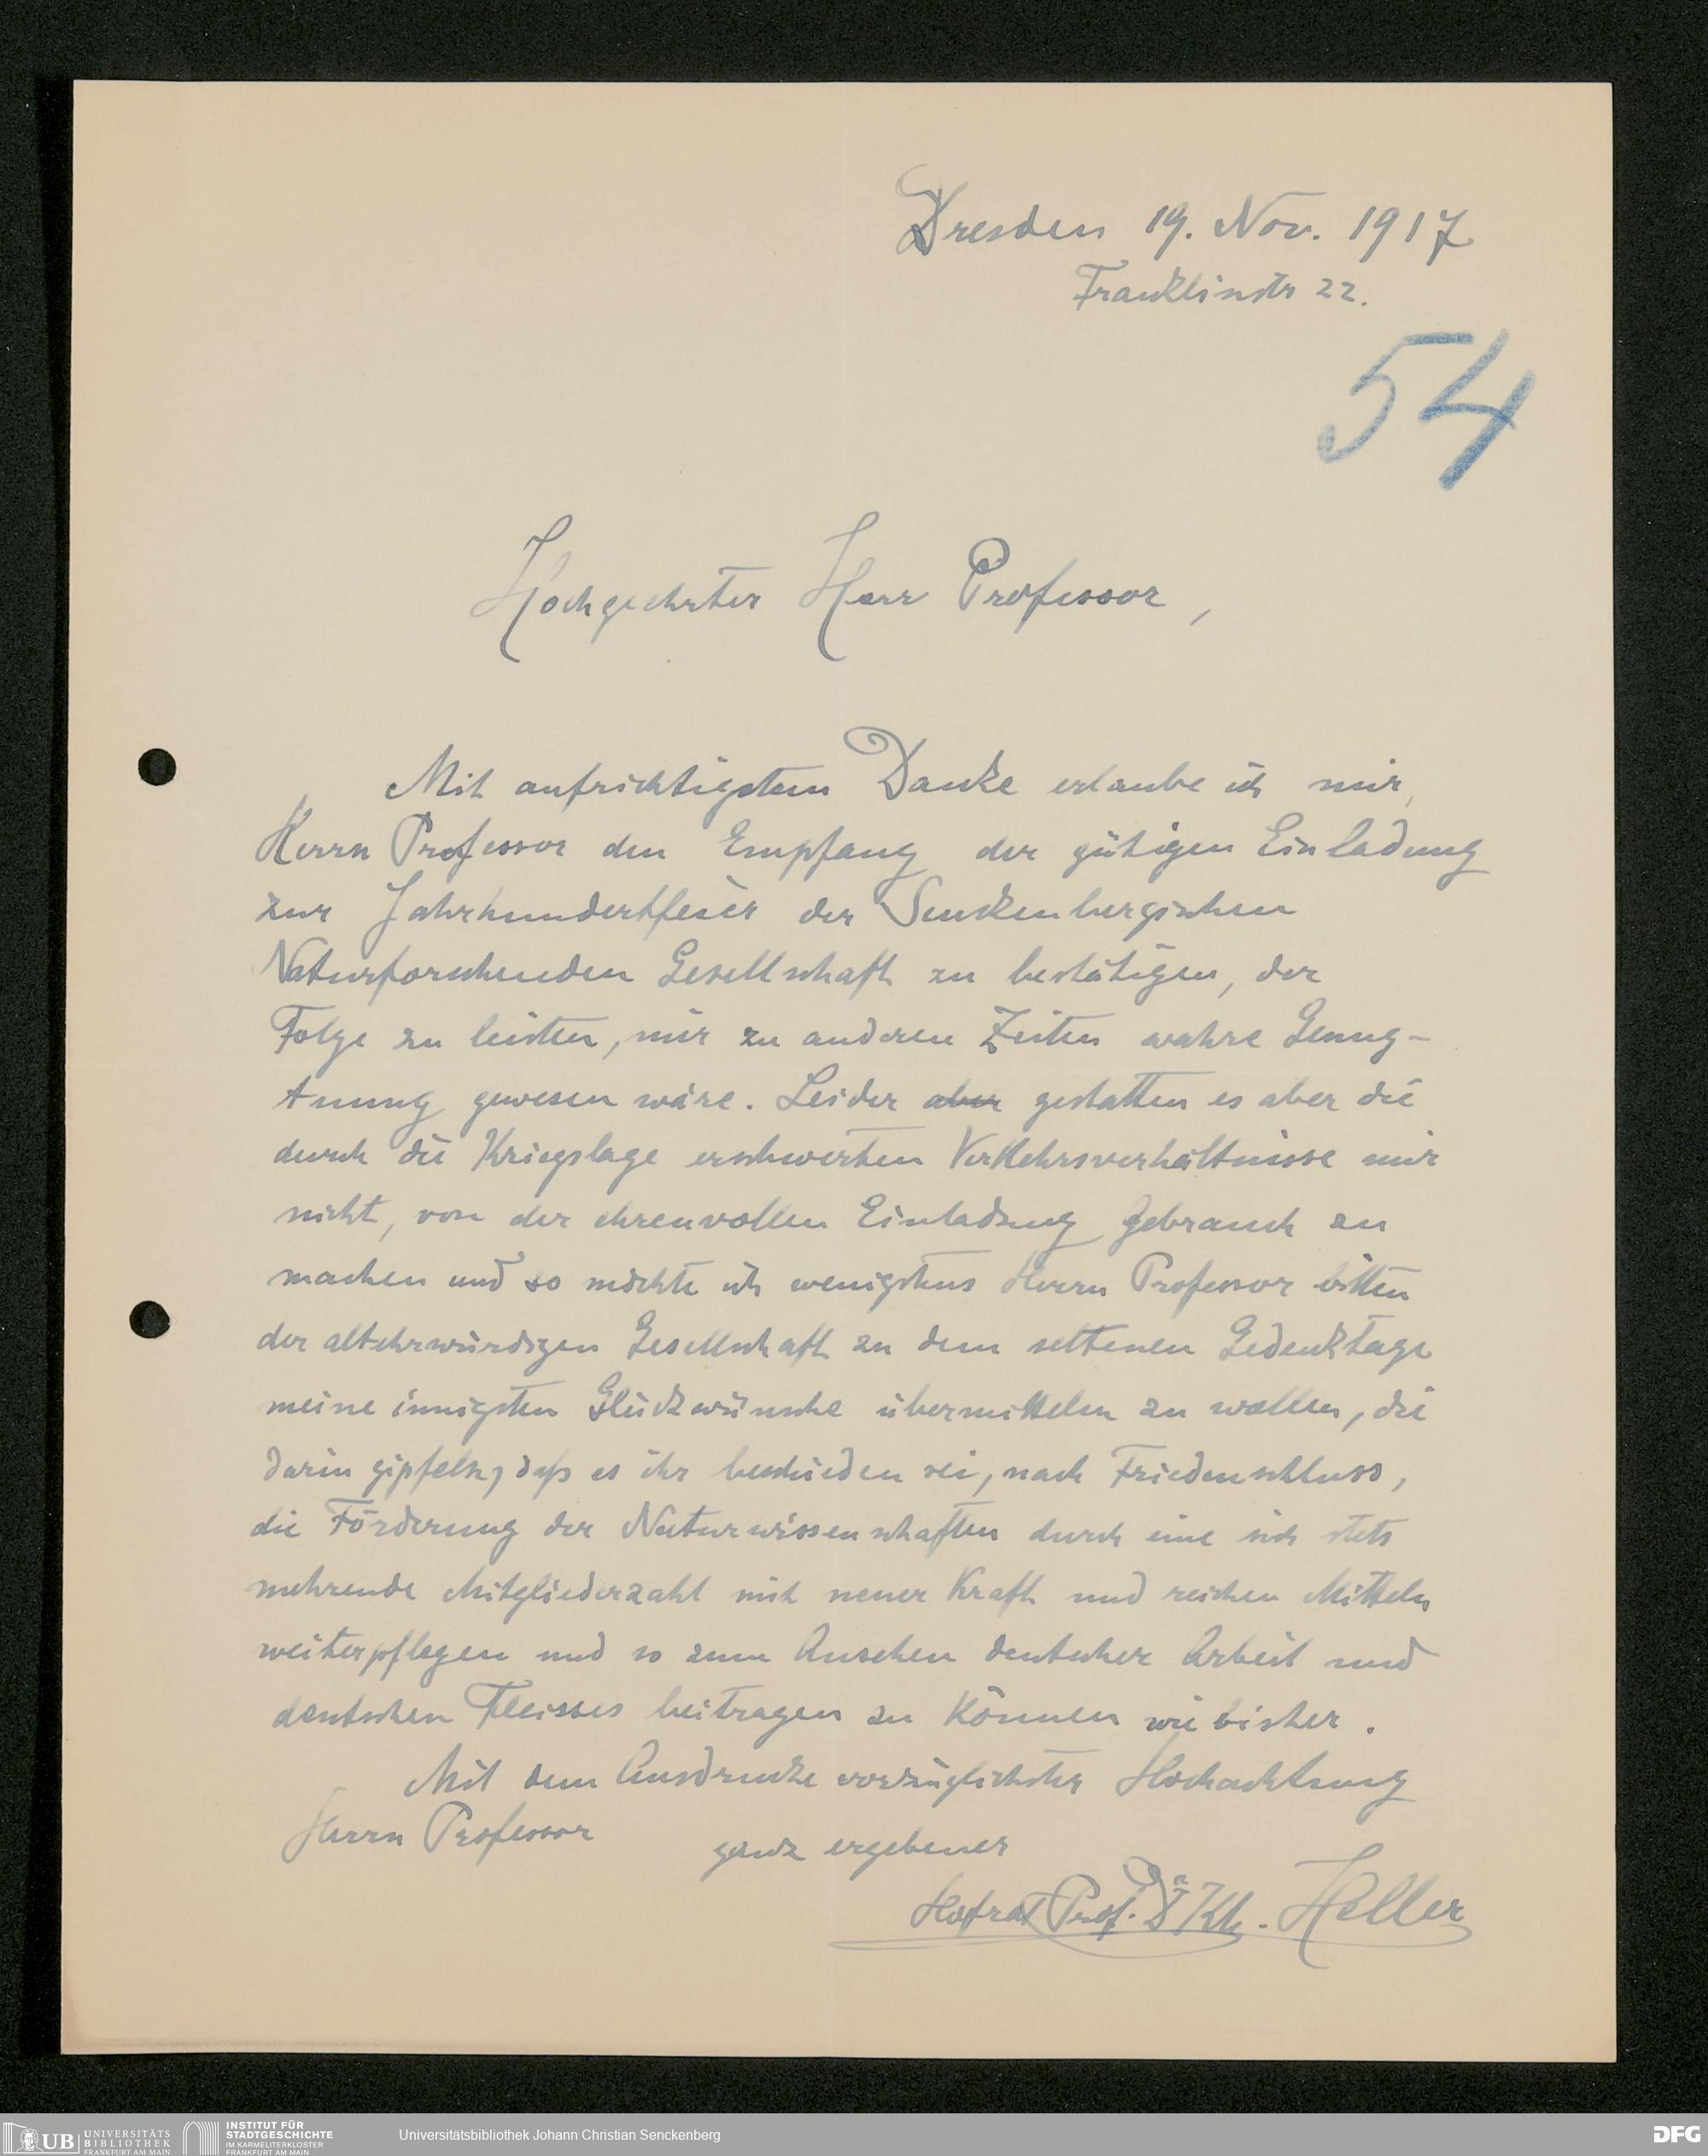 Dresden 19. Nov. 1917
Franklinstr 22.
54
Hochgeehrter Herr Professor,
Mit aufrichtigstem Danke erlaube ich mir,
Herrn Professor den Empfang der gütigen Einladung
zur Jahrhundertfeier der Senckenbergischen
Naturforschenden Gesellschaft zu bestätigen, der
Folge zu leisten, mir zu anderen Zeiten wahre Genug-
tuung gewesen wäre. Leider aber gestatten es aber die
durch die Kriegslage erschwerten Verkehrsverhältnisse mir
nicht, von der ehrenvollen Einladung Gebrauch zu
machen und so möchte ich wenigstens Herrn Professor bitten
der altehrwürdigen Gesellschaft zu dem seltenen Gedenktage
meine innigsten Glückwünsche übermitteln zu wollen, die
darin gipfeln, daß es ihr beschieden sei, nach Friedenschluss,
die Förderung der Naturwissenschaften durch eine sich stets
mehrende Mitgliederzahl mit neuer Kraft und reichen Mitteln
weiterpflegen und so zum Ansehen deutscher Arbeit und
deutschen Fleisses beitragen zu können wie bisher.
Mit dem Ausdrucke vorzüglichster Hochachtung
Herrn Professor
ganz ergebener
Hofrat Prof. Dr. Kh. Heller
UB UNIVERSITÄTS
BIBLIOTHEK
FRANKFURT AM MAIN
INSTITUT FÜR
STADTGESCHICHTE
IM KARMELITERKLOSTER
FRANKFURT AM MAIN
Universitätsbibliothek Johann Christian Senckenberg
DFG